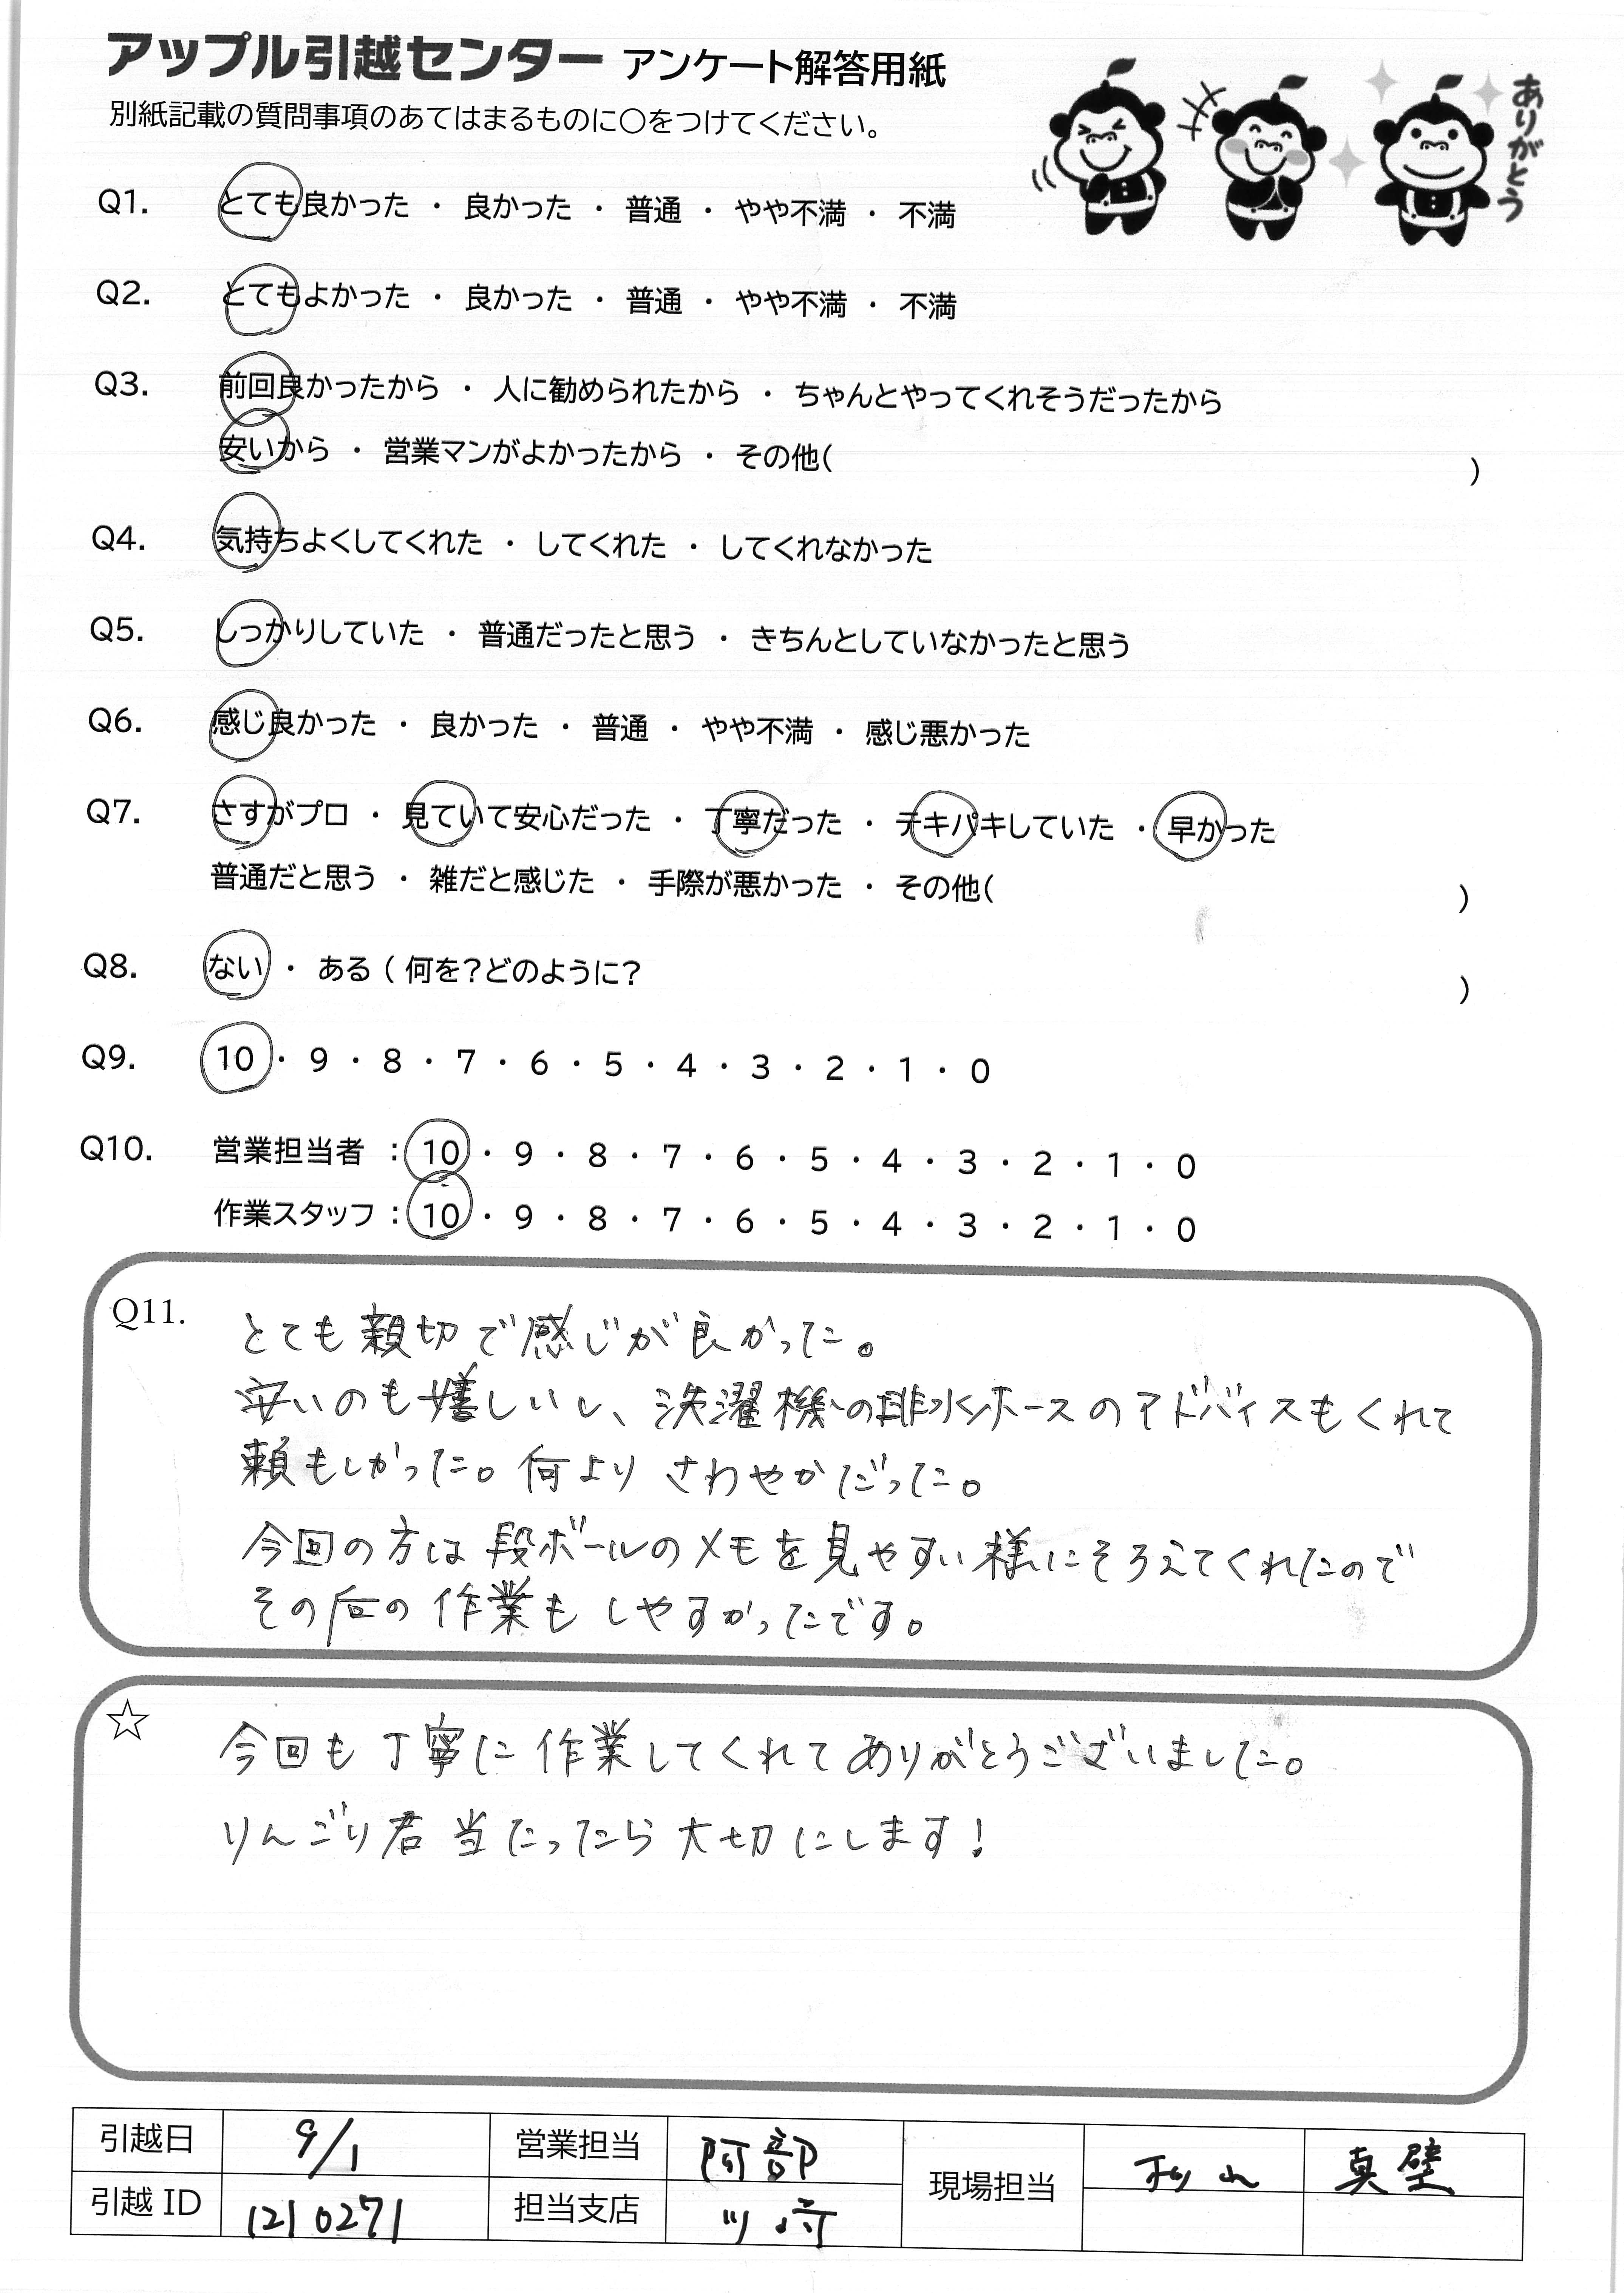 アップル引越センター アンケート解答用紙
別紙記載の質問事項のあてはまるものに○をつけてください。
ありがとう
Q1. とても良かった ・ 良かった ・ 普通 ・ やや不満 ・ 不満
Q2. とてもよかった ・ 良かった ・ 普通 ・ やや不満 ・ 不満
Q3. 前回良かったから ・ 人に勧められたから ・ ちゃんとやってくれそうだったから
安いから ・ 営業マンがよかったから ・ その他( )
Q4. 気持ちよくしてくれた ・ してくれた ・ してくれなかった
Q5. しっかりしていた ・ 普通だったと思う ・ きちんとしていなかったと思う
Q6. 感じ良かった ・ 良かった ・ 普通 ・ やや不満 ・ 感じ悪かった
Q7. さすがプロ ・ 見ていて安心だった ・ 丁寧だった ・ テキパキしていた ・ 早かった
普通だと思う ・ 雑だと感じた ・ 手際が悪かった ・ その他( )
Q8. ない ・ ある ( 何を?どのように? )
Q9. 10 ・ 9 ・ 8 ・ 7 ・ 6 ・ 5 ・ 4 ・ 3 ・ 2 ・ 1 ・ 0
Q10. 営業担当者 : 10 ・ 9 ・ 8 ・ 7 ・ 6 ・ 5 ・ 4 ・ 3 ・ 2 ・ 1 ・ 0
作業スタッフ : 10 ・ 9 ・ 8 ・ 7 ・ 6 ・ 5 ・ 4 ・ 3 ・ 2 ・ 1 ・ 0
Q11. とても親切で感じが良かった。
安いのも嬉しいし、洗濯機の排水ホースのアドバイスもくれて
頼もしかった。何よりさわやかだった。
今回の方は段ボールのメモを見やすい様にそろえてくれたので
その后の作業もしやすかったです。
☆ 今回も丁寧に作業してくれてありがとうございました。
りんごり君当たったら大切にします!
引越日 9/1 営業担当 阿部 現場担当 真壁
引越ID 1210271 担当支店